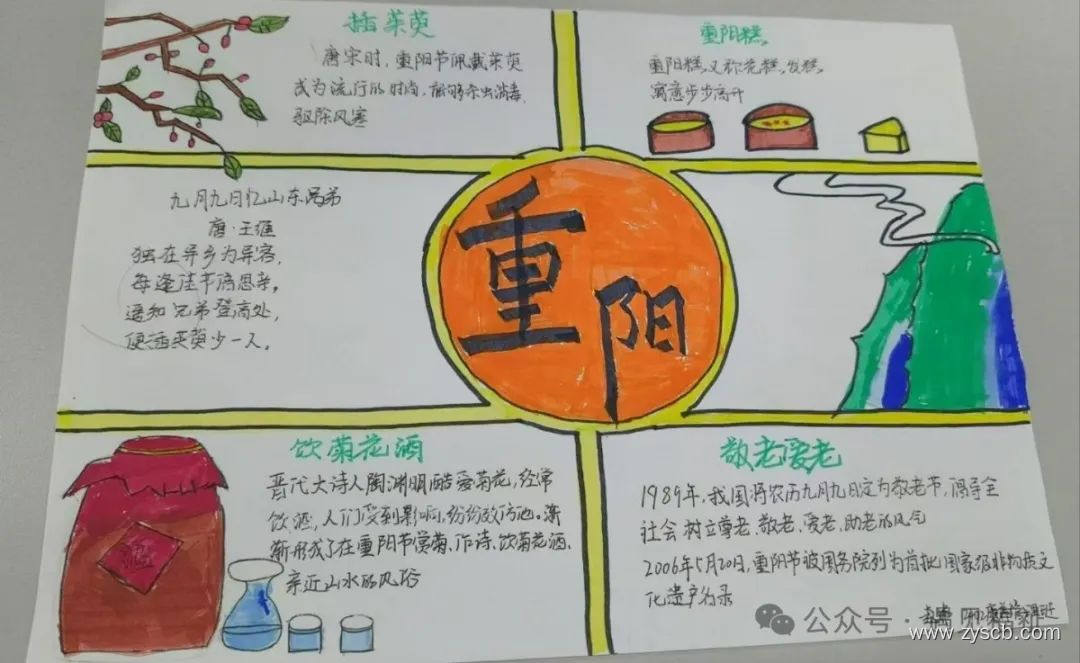 插茱萸
唐宋时，重阳节佩戴茱萸
成为流行的时尚，能够杀虫消毒，
驱除风寒
重阳糕
重阳糕，又称花糕、发糕，
寓意步步高升
九月九日忆山东兄弟
唐·王维
独在异乡为异客，
每逢佳节倍思亲。
遥知兄弟登高处，
便插茱萸少一人。
重阳
饮菊花酒
晋代大诗人陶渊明酷爱菊花，经常
饮酒，人们受到影响，纷纷效仿他。渐
渐形成了在重阳节赏菊、作诗、饮菊花酒、
亲近山水的风俗
酒
敬老爱老
1989年，我国将农历九月九日定为敬老节，倡导全
社会树立尊老、敬老、爱老、助老的风气
2006年5月20日，重阳节被国务院列为首批国家级非物质文
化遗产名录
公众号·
www.zyscb.com